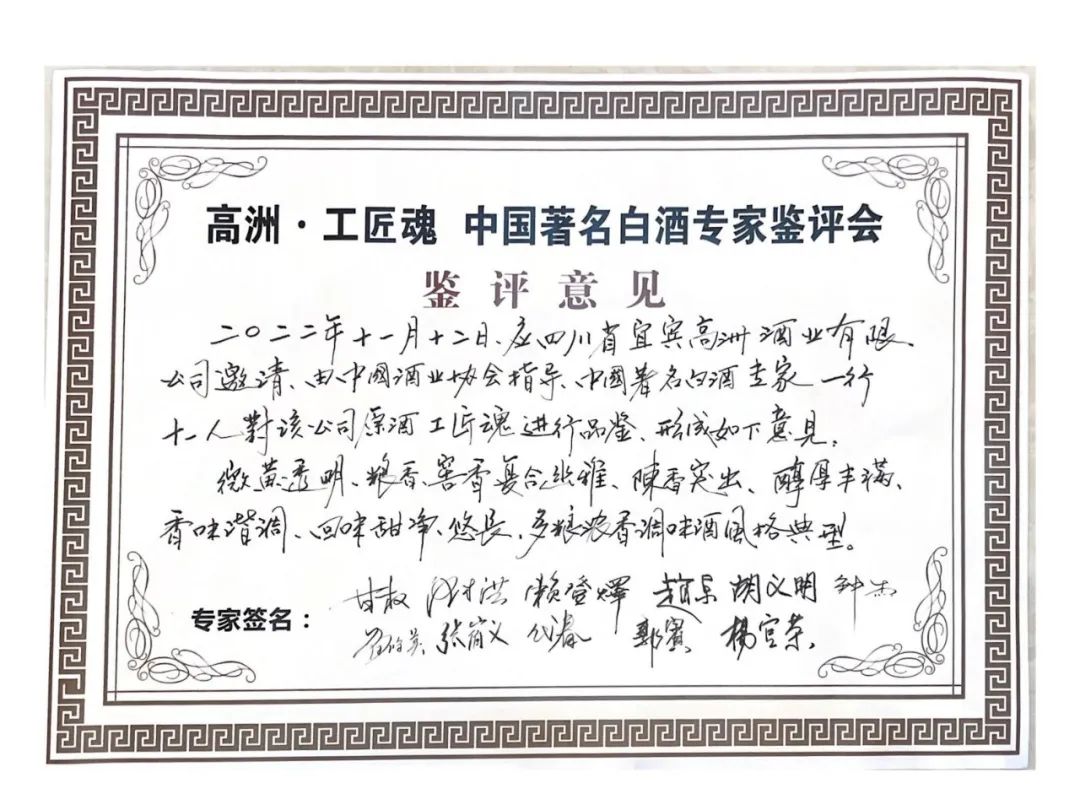 高洲·工匠魂 中国著名白酒专家鉴评会
鉴评意见
二〇二二年十一月十二日、应四川省宜宾高洲酒业有限
公司邀请、由中國酒业协会指导、中國著名白酒专家一行
十一人對该公司原酒工匠魂进行品鉴、形成如下意见,
微黄透明、粮香、窖香复合幽雅、陳香突出、醇厚丰满、
香味谐调、回味甜净、悠長,多粮浓香调味酒风格典型。
专家签名: 赖登燡 胡义明 钟杰
郭宾 楊官荣